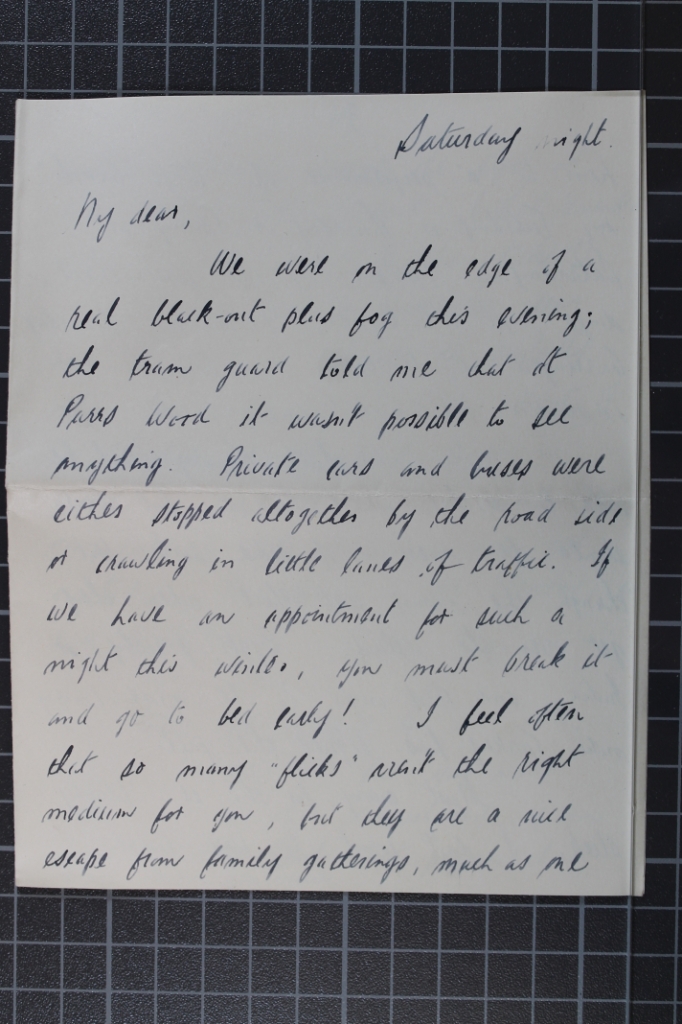 Saturday night.
My dear,
We were on the edge of a
real black-out plus fog this evening;
the tram guard told me that at
Parrs Wood it wasn't possible to see
anything. Private cars and buses were
either stopped altogether by the road side
or crawling in little lanes of traffic. If
we have an appointment for such a
night this winter, you must break it
and go to bed early! I feel often
that so many "flicks" aren't the right
medium for you, but they are a nice
escape from family gatherings, much as one